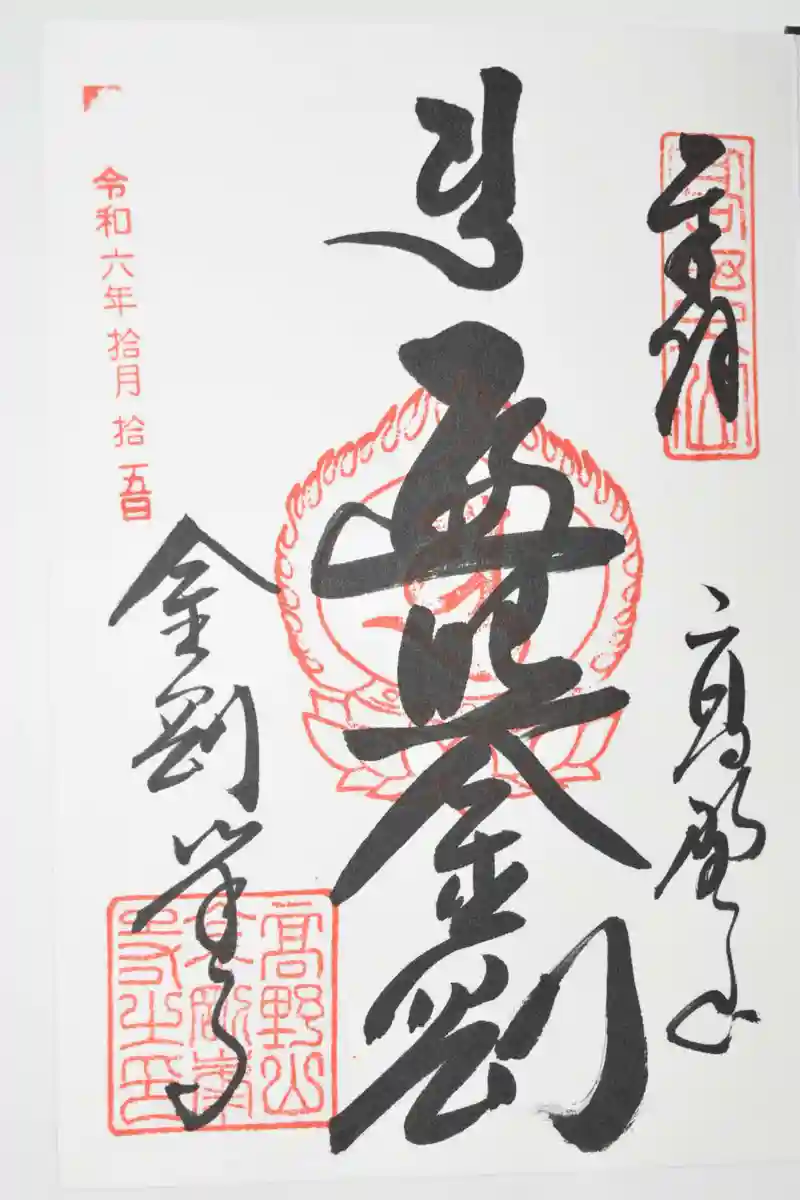 奉拝
高野山
遍照金剛
令和六年拾月拾五日
金剛峯寺
高野山
金剛峯
寺之印